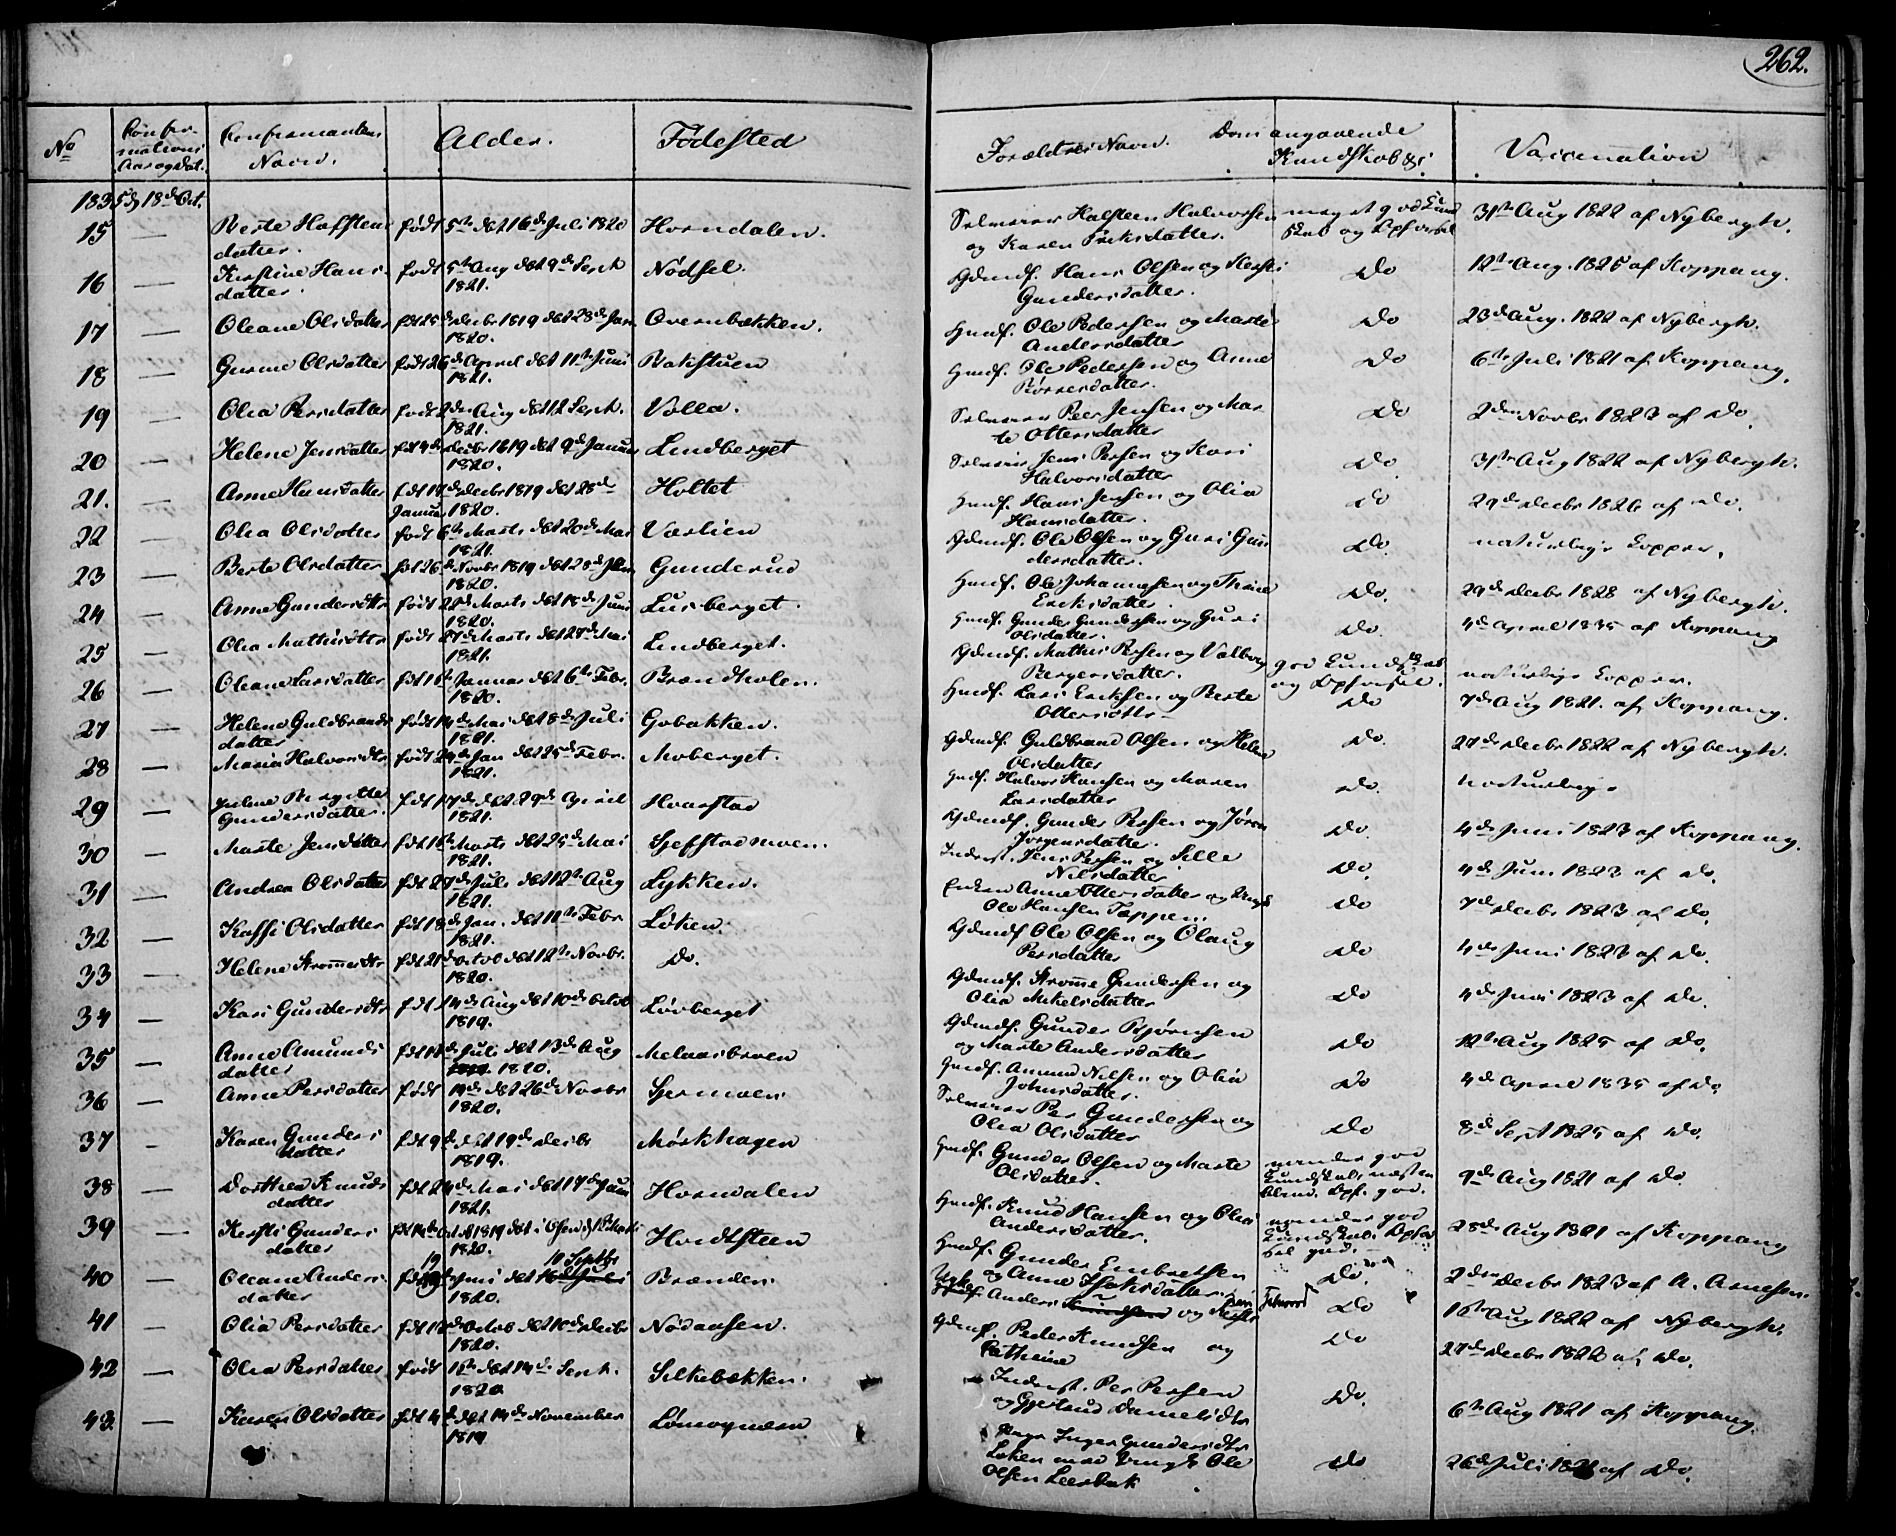 262.
No
Confir-
mations
Aar og Dat.
Confirmantens
Navn.
Alder.
Fødested
Forældres Navn.
Dom angaaende
Kundskab &c:
Vaccination
1835 d 18de Oct.
15 — Berte Halfsteens
datter. født 5te døbt 16de Juli 1820 Horndalen. Selveier Halsteen Halvorsen
og Karen Eriksdatter. meget god Kund
skab og Opførsel 31te Aug 1822 af Nybergh.
16 — Kirstine Hans-
datter. født 5te Aug døbt 9de Sept
1821. Nødsel. Gdmdf. Hans Olsen og Kersti
Gundersdatter. Do 12te Aug. 1825 af Koppang.
17 — Oleane Olsdatter fdt 25de Decbr 1819 døbt 23de Jan
1820. Overnbækken. Husmdf. Ole Pedersen og Marte
Andersdatter Do 23de Aug. 1822 af Nybergh.
18 — Gunne Olsdatter født 26de April døbt 11te Juni
1821. Bakstuen Husmdf. Ole Pedersen og Anne
Børresdatter. Do 6te Juli 1821 af Koppang.
19 — Olia Persdatter født 2den Aug døbt 12 Sept.
1821. Volla. Selveier Peer Jensen og Mar
te Ottersdatter Do 2den Novbr 1823 af Do.
20 — Helene Jensdatter fdt 4de Decbr 1819 døbt 9de Januar
1820. Lindberget Selveier Jens Persen og Kari
Halvorsdatter Do 31te Aug 1822 af Nybergh.
21. — Anne Hansdatter fdt 17de Decbr 1819 døbt 28de
Januar 1820. Holtet Husmdf. Hans Jensen og Olia
Hansdatter. Do 29de Decbr 1826 af Do.
22 — Olia Olsdatter født 6te Marts døbt 20de Mai
1821. Væslien Gdmdf. Ole Olsen og Guri Gun
dersdatter. Do. naturlige Kopper.
23 — Berte Olsdatter fdt 26de Novbr 1819 døbt 28de Jan
1820. Gunderud Husmdf. Ole Johannesen og Thrine
Eriksdatter. Do. 29de Decbr 1828 af Nybergh.
24 — Anne Gundersdtr født 28de Marts døbt 18de Juni
1820. Lusberget. Husmdf. Gunder Gundersen og Guri
Olsdatter. Do. 4de April 1835 af Koppang
25 — Olia Mathisdttr født 27de Marts døbt 27de Mai
1821. Lindberget. Gdmdf. Mathis Persen og Valborg
Bergersdatter. god Kundskab
og Opførsel. naturlige Kopper.
26 — Oleane Larsdatter fdt 1ste Januar døbt 6te Febr.
1820. Brændholen. Husmdf. Lars Eriksen og Berte
Ottersdttr Do 7de Aug 1821. af Koppang.
27 — Helene Guldbrands
datter født 14de Mai døbt 8de Juli
1821. Gobakken. Gdmdf. Guldbrand Olsen og Helene
Olsdatter Do. 27de Decbr 1822 af Nybergh.
28 — Maria Halvorsdtr født 24de Jan døbt 25de Febr.
1821. Moberget. Husmdf. Halvor Hansen og Maren
Larsdatter Do. naturlige
29 — Juliane Birgitte
Gundersdatter. fdt 17de døbt 29de April
1821. Hvarstad Gdmdf. Gunder Persen og Jøran
Jørgensdatter. Do. 4de Juni 1823 af Koppang.
30 — Marte Jensdatter fdt 16te Marts døbt 25de Mai
1821. Sjefstadmoen. Inderst. Jens Persen og Sille
Nilsdatter Do. 4de Juni 1823 af Do.
31 — Andrea Olsdatter fdt 27de Juli døbt 12te Aug
1821. Lykken. Enken Anne Ottersdatter og Ungk
Ole Hansen Tappen. Do 7de Decbr 1823 af Do.
32 — Kaffi Olsdatter fdt 18de Jan. døbt 11te Febr
1821. Løken. Gdmdf Ole Olsen og Olaug
Persdatter Do 4de Juni 1823 af Do.
33 — Helene Strømsdtr fdt 21de Octob døbt 12te Novbr.
1820. Do. Gdmdf. Strømme Gundersen og
Olia Mikelsdatter Do 4de Juni 1823 af Do.
34 — Kari Gundersdtr fdt 14de Aug døbt 10de Octob
1819. Løvberget Gdmdf. Gunder Bjørnsen
og Marte Andersdatter Do 12te Aug 1825 af Do.
35 — Anne Amunds
datter fdt 13de Juli døbt 13de Aug
1820. Melaasbraen Husmdf. Amund Nilsen og Olia
Johnsdatter. Do 4de April 1835 af Do
36 — Anne Persdatter født 19de døbt 26de Novbr
1820. Sjermoen Selveier Per Gundersen og
Olia Olsdatter Do 8de Sept 1825 af Do.
37 — Karen Gunders
datter fdt 9de døbt 19de Decbr
1819. Mørkhagen Husmdf. Gunder Olsen og Marte
Olsdatter. mindre god
Kundskab, næsten
 Opf. god. 9de Aug 1821 af Do
38 — Dorthea Knuds
datter fdt 24de Mai døbt 17de Juni
1821. Horndalen Husmdf. Knud Hansen og Olia
Andersdatter. mindre god
Kundskab. Opfør
sel god. 28de Aug 1821 af Koppang
39 — Kersti Gunders
datter fdt 14de Oct 1819 døbt i Osen d 18 Marts
1820. Hvidsteen Husmdf. Gunder Embretsen
og Anne Isaksdatter. Do. 2den Decbr 1823 af A. Arnesen.
40 — Oleane Anders
datter fdt 19 Juni døbt 10 Septbr
1820. Brænden Anders og Do 15te Aug 1822 af Nybergh.
41 — Olia Persdatter fdt 12te Octob døbt 10de Decbr
1820. Nødaasen. Gdmdf. Peder Knudsen og
Cathrine Do 27de Decbr 1822 af Do.
42 — Olia Persdatter født 15te døbt 14de Sept.
1820 Silkebækken. Inderst. Per Persen
og Gjertrud Danielsdtr Do. 6te Aug 1821 af Koppang.
43. — Karen Olsdatter fdt 4de døbt 14de November
1819 Lømognæsen Pige Inger Gundersdtr
Løken med Ungk Ole
Olsen Leerbæk Do 26de Juli 1821 af Do.